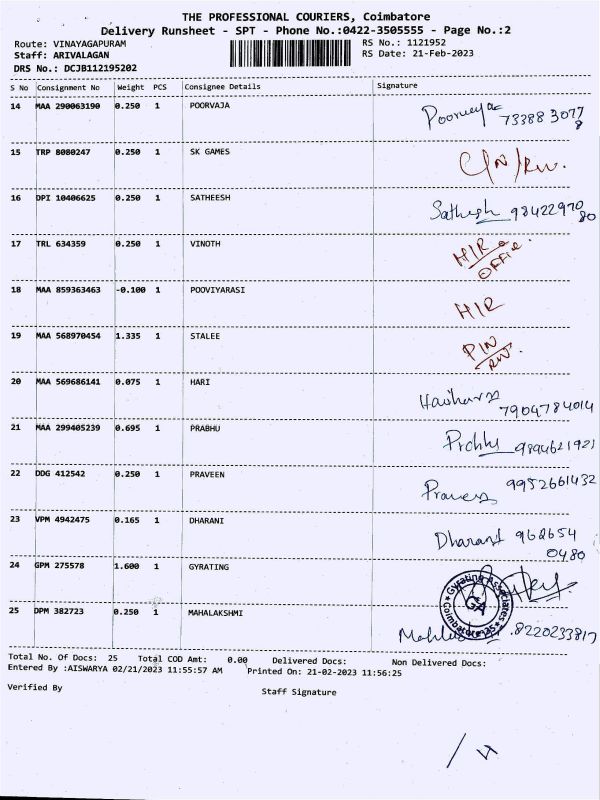 THE PROFESSIONAL COURIERS, Coimbatore
Delivery Runsheet - SPT - Phone No.:0422-3505555 - Page No.:2
Route: VINAYAGAPURAM RS No.: 1121952
Staff: ARIVALAGAN RS Date: 21-Feb-2023
DRS No.: DCJB112195202
S No Consignment No Weight PCS Consignee Details Signature
14 MAA 290063190 0.250 1 POORVAJA
Poorvaja 73388 3077
8
15 TRP 8080247 0.250 1 SK GAMES
16 DPI 10406625 0.250 1 SATHEESH
Sathesh 98422970
80
17 TRL 634359 0.250 1 VINOTH
HIR
OFFice.
18 MAA 859363463 -0.100 1 POOVIYARASI
HIR
19 MAA 568970454 1.335 1 STALEE
PIN
20 MAA 569686141 0.075 1 HARI
7904784014
21 MAA 299405239 0.695 1 PRABHU
9894621921
22 DDG 412542 0.250 1 PRAVEEN
9952661432
23 VPM 4942475 0.165 1 DHARANI
Dharani 962654
0480
24 GPM 275578 1.600 1 GYRATING
Gyrating Associates
GA
Coimbatore-25
25 DPM 382723 0.250 1 MAHALAKSHMI
8220233817
Total No. Of Docs: 25 Total COD Amt: 0.00 Delivered Docs: Non Delivered Docs:
Entered By :AISWARYA 02/21/2023 11:55:57 AM Printed On: 21-02-2023 11:56:25
Verified By Staff Signature